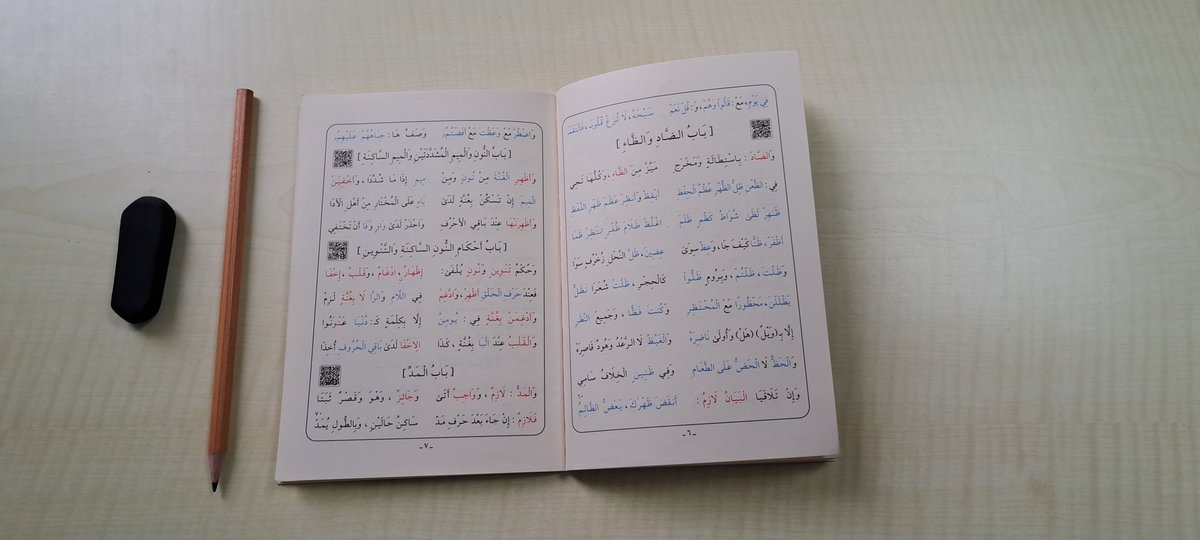 فِي يَوْمِ، مَعْ: قَالُوا وَهُمْ، وَ: قُلْ نَعَمْ سَبِّحْهُ، لَا تُزِغْ قُلُوبَ، فَالْتَقَمْ
[ بَابُ الضَّادِ وَالظَّاءِ ]
وَالضَّادَ : بِاسْتِطَالَةٍ وَمَخْرَجِ مَيِّزْ مِنَ الظَّاءِ ، وَكُلُّهَا تَجِي
فِي : الظَّعْنِ ظِلُّ الظُّهْرِ عُظْمُ الْحِفْظِ أَيْقِظْ وَأَنْظِرْ عَظْمَ ظَهْرِ اللَّفْظِ
ظَاهِرْ لَظَىٰ شُوَاظُ كَظْمٍ ظَلَمَا اغْلُظْ ظَلَامَ ظُفْرٍ انْتَظِرْ ظَمَا
أَظْفَرَ، ظَنًّا كَيْفَ جَا، وَعِظْ سِوَىٰ عِضِينَ، ظَلَّ النَّحْلُ زُخْرُفٍ سَوَا
وَظَلْتَ ، ظَلْتُمْ ، وَبِرُومٍ ظَلُّوا كَالْحِجْرِ، ظَلَّتْ شُعَرَا نَظَلُّ
يَظْلَلْنَ، مَحْظُورًا مَعَ الْمُحْتَظِرِ وَكُنْتَ فَظًّا ، وَجَمِيعَ النَّظَرِ
إِلَّا بِـ (وَيْلٌ) (هَلْ) وَأُولَىٰ نَاضِرَهْ وَالْغَيْظُ لَا الرَّعْدُ وَهُودٌ قَاصِرَهْ
وَالْحَظُّ لَا الْحَضُّ عَلَى الطَّعَامِ وَفِي ظَنِينٍ الْخِلَافُ سَامِي
وَإِنْ تَلَاقَيَا الْبَيَانُ لَازِمُ : أَنْقَضَ ظَهْرَكَ ، يَعَضُّ الظَّالِمُ
-٦-
وَاضْطُرَّ مَعْ وَعَظْتَ مَعْ أَفَضْتُمُ، وَصَفِّ هَا : جِبَاهُهُمْ عَلَيْهِمُ،
[ بَابُ النُّونِ وَالْمِيمِ الْمُشَدَّدَتَيْنِ وَالْمِيمِ السَّاكِنَةِ ]
وَأَظْهِرِ الْغُنَّةَ مِنْ نُونٍ وَمِنْ مِيمٍ إِذَا مَا شُدِّدَا، وَأَخْفِيَنْ
الْمِيمَ إِنْ تَسْكُنْ بِغُنَّةٍ لَدَىٰ بَاءٍ عَلَى الْمُخْتَارِ مِنْ أَهْلِ الْأَدَا
وَأَظْهِرَنْهَا عِنْدَ بَاقِي الْأَحْرُفِ وَاحْذَرْ لَدَىٰ وَاوٍ وَفَا أَنْ تَخْتَفِي
[ بَابُ أَحْكَامِ النُّونِ السَّاكِنَةِ وَالتَّنْوِينِ ]
وَحُكْمُ تَنْوِينٍ وَنُونٍ يُلْفَىٰ: إِظْهَارٌ ، ادْغَامٌ ، وَقَلْبٌ ، إِخْفَا
فَعِنْدَ حَرْفِ الْحَلْقِ أَظْهِرْ، وَادَّغِمْ فِي اللَّامِ وَالرَّا لَا بِغُنَّةٍ لَزِمْ
وَأَدْغِمَنْ بِغُنَّةٍ فِي : يُومِنُ إِلَّا بِكِلْمَةٍ كَـ : دُنْيَا عَنْوَنُوا
وَالْقَلْبُ عِنْدَ الْبَا بِغُنَّةٍ ، كَذَا الِاخْفَا لَدَىٰ بَاقِي الْحُرُوفِ أُخِذَا
[ بَابُ الْمَدِّ ]
وَالْمَدُّ : لَازِمٌ ، وَوَاجِبٌ أَتَىٰ وَجَائِزٌ ، وَهْوَ وَقَصْرٌ ثَبَتَا
فَلَازِمٌ : إِنْ جَاءَ بَعْدَ حَرْفِ مَدّ سَاكِنُ حَالَيْنِ ، وَبِالطُّولِ يُمَدّ
-٧-